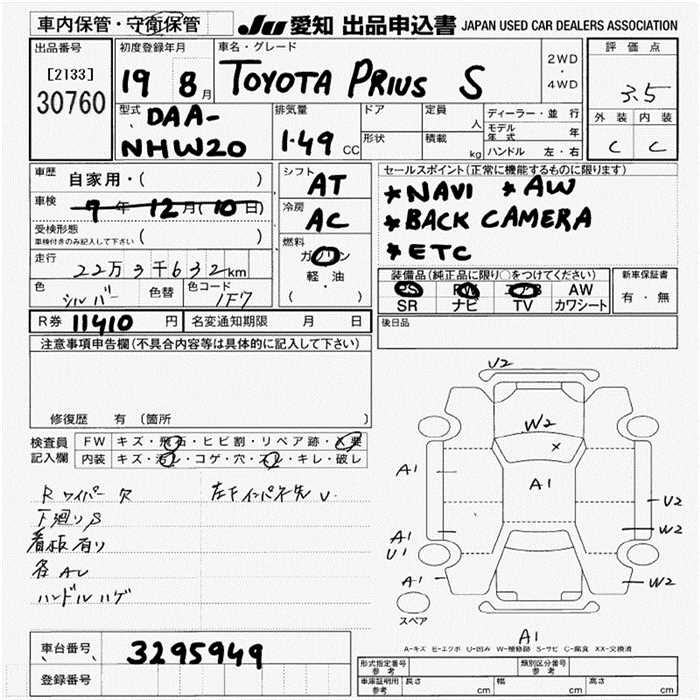 車内保管・守衛保管
JU 愛知 出品申込書 JAPAN USED CAR DEALERS ASSOCIATION
出品番号
[2133]
30760
初度登録年月
19 8月
車名・グレード
TOYOTA PRIUS S
2WD
・
4WD
評価点
3.5
外装 内装
C C
型式
DAA-
NHW20
排気量
1.49 CC
ドア
形状
定員 人
積載 kg
ディーラー・並行
モデル年式 年
ハンドル 左・右
車歴 自家用・( )
車検 9年 12月(10日)
受検形態
車検付きのみ記入して下さい ( )
走行
22万3千632km
色 シルバー 色替 色コード 1F7
シフト AT
冷房 AC
燃料
ガソリン
軽・油
( )
セールスポイント(正常に機能するものに限ります)
*NAVI *AW
*BACK CAMERA
*ETC
装備品(純正品に限り○をつけてください)
PS PW エアB AW
SR ナビ TV カワシート
新車保証書
有・無
R券 11410 円 名変通知期限 月 日
後日品
注意事項申告欄(不具合内容等は具体的に記入して下さい)
修復歴 有(箇所
検査員
記入欄
FW キズ・飛石・ヒビ割・リペア跡・X要
内装 キズ・汚レ・コゲ・穴・スレ・キレ・破レ
Rワイパー欠 左下インパネ先U.
下廻りS
看板有り
各AU
ハンドルハゲ
V2
W2
X
A1
A1
A1
U1
A1
U2
W2
W2
スペア
A1
A-キズ E-エクボ U-凹み W-補修跡 S-サビ C-腐食 XX-交換済
車台番号 3295949
登録番号
形式指定番号
参考
類別区分番号
参考
車庫証明用
参考
長さ cm 幅 cm 高さ cm